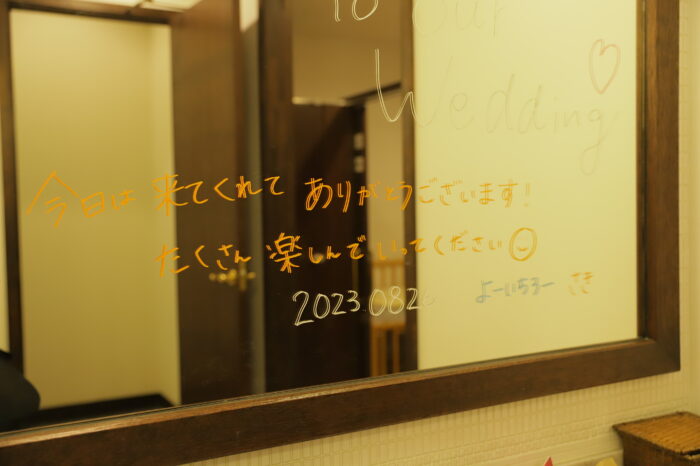 To Our
Wedding♡
今日は来てくれてありがとうございます!
たくさん楽しんでいってください☺
2023.0826 よーいちろー さき